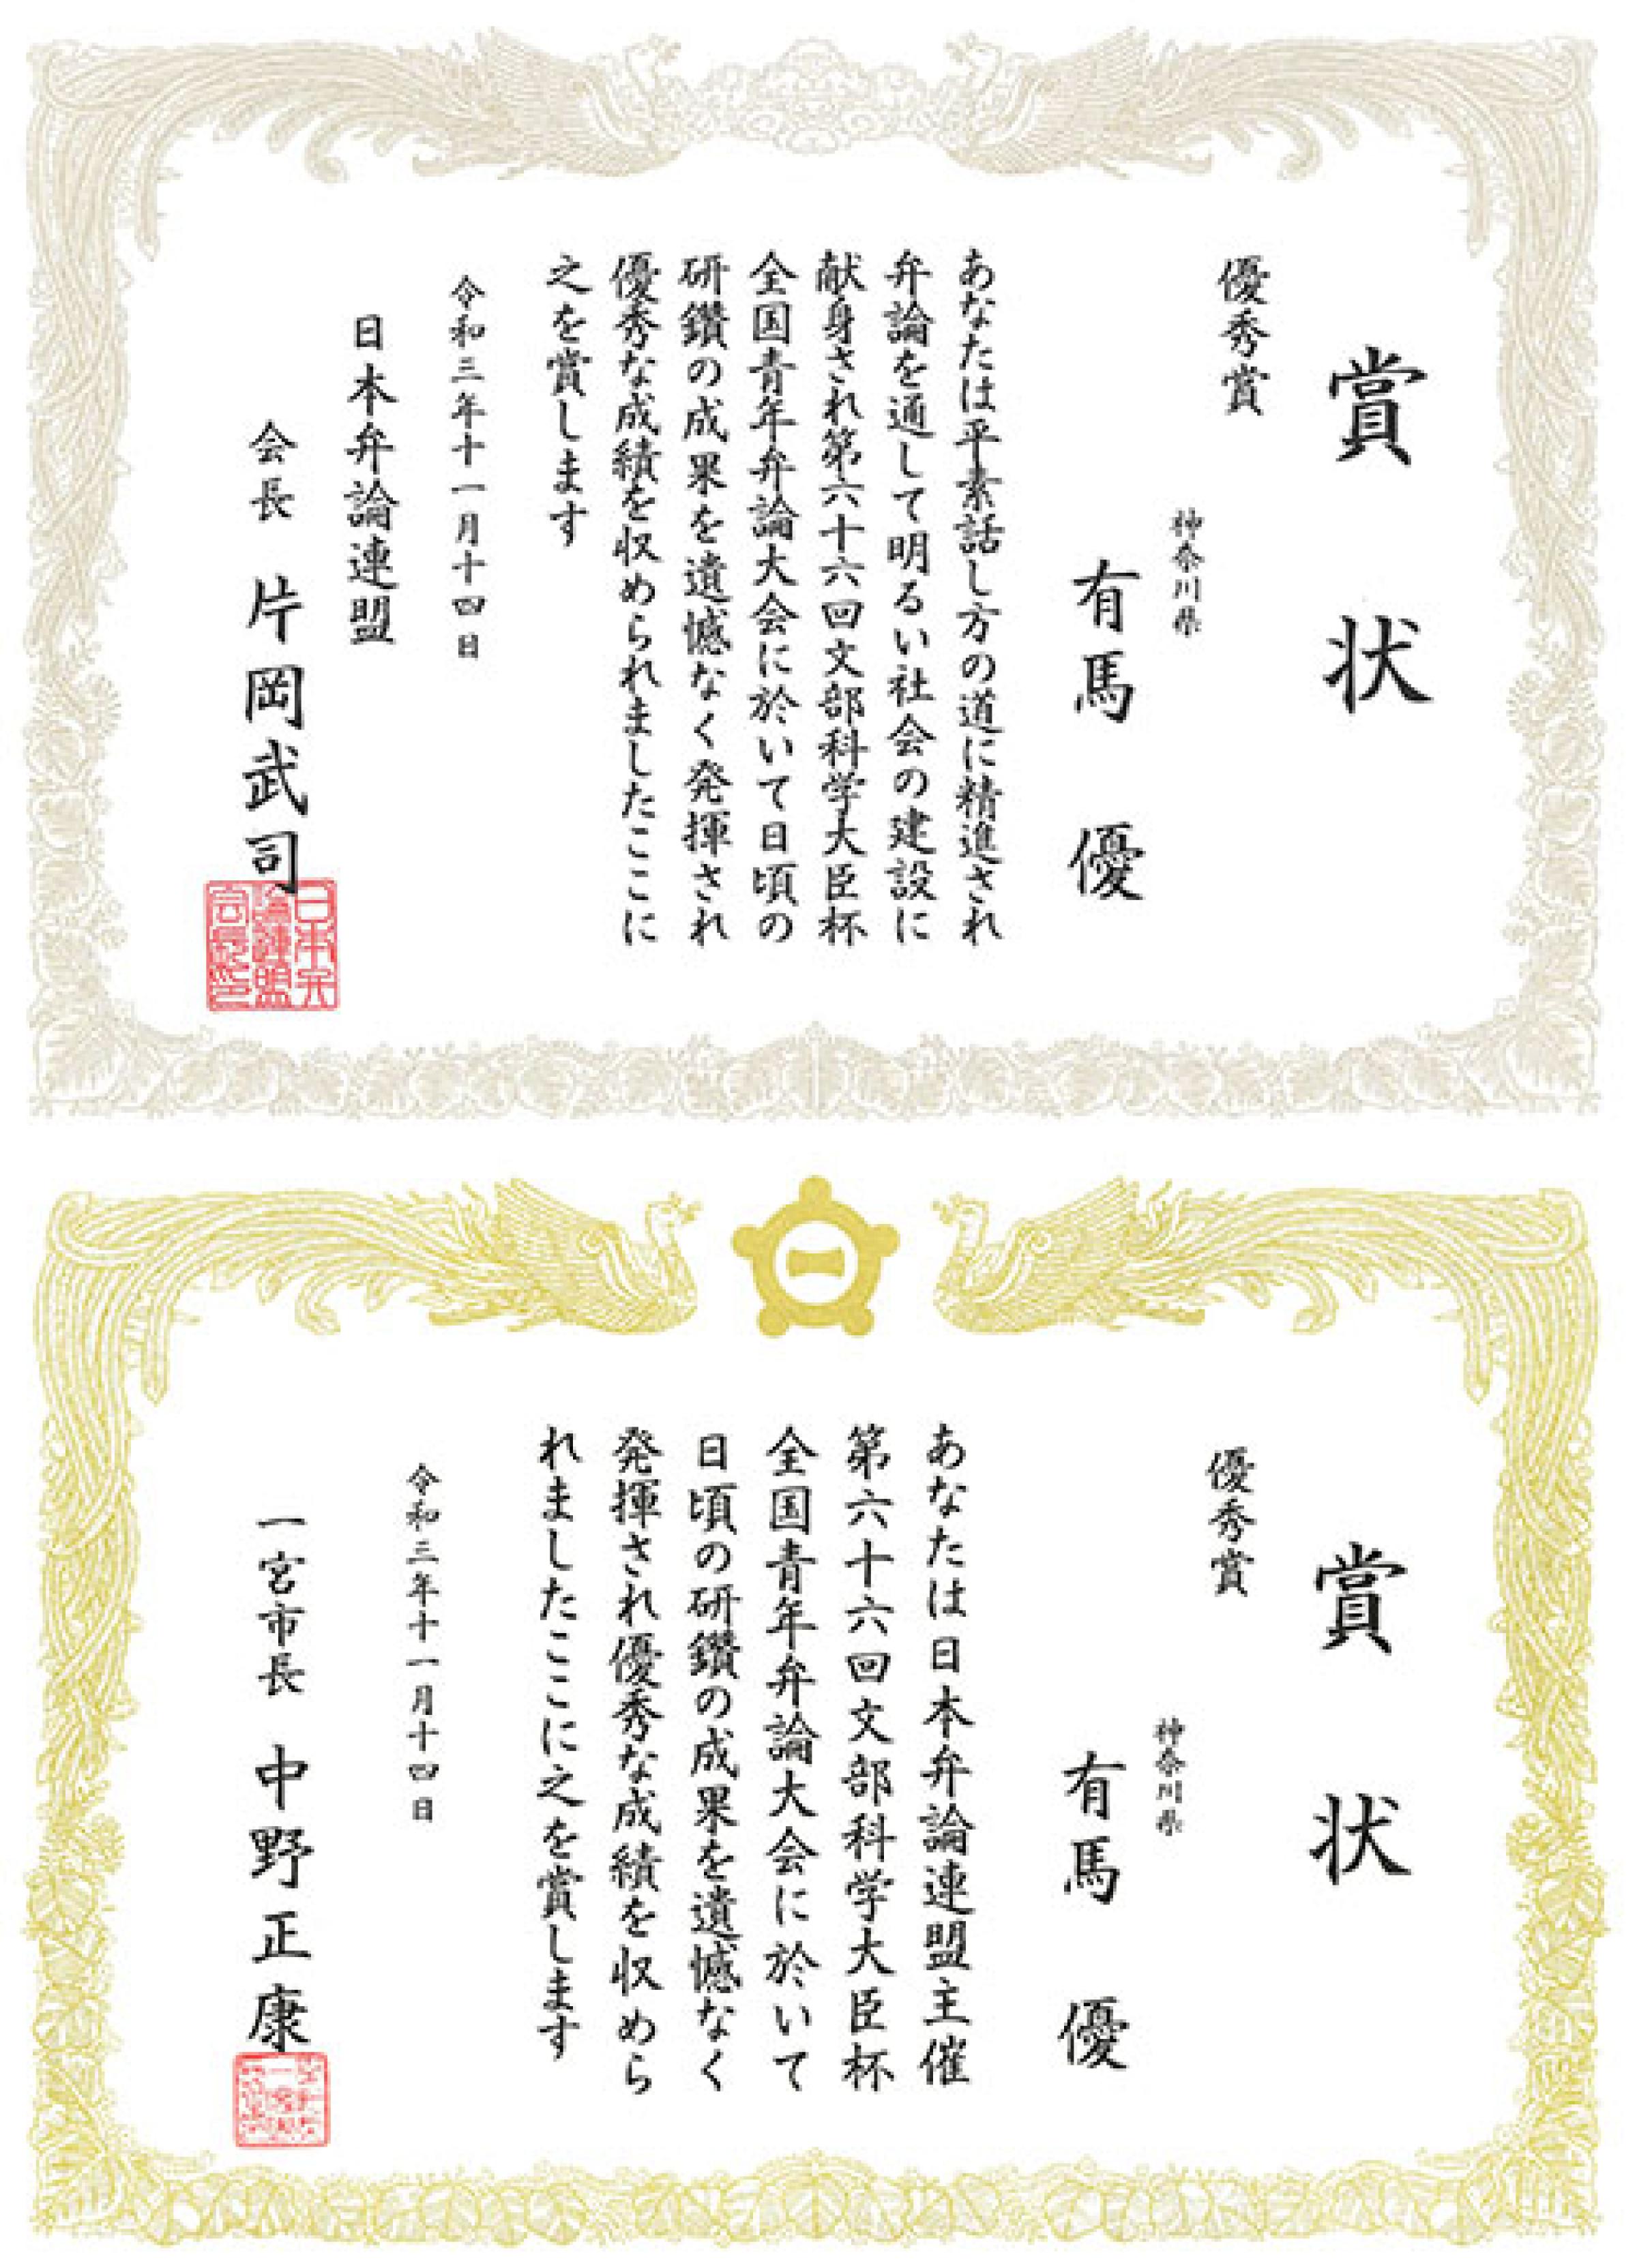 賞状
優秀賞
神奈川県
有馬優
あなたは平素話し方の道に精進され
弁論を通して明るい社会の建設に
献身され第六十六回文部科学大臣杯
全国青年弁論大会に於いて日頃の
研鑽の成果を遺憾なく発揮され
優秀な成績を収められましたここに
之を賞します
令和三年十一月十四日
日本弁論連盟
会長 片岡武司
日本弁
論連盟
会長印
賞状
優秀賞
神奈川県
有馬優
あなたは日本弁論連盟主催
第六十六回文部科学大臣杯
全国青年弁論大会に於いて
日頃の研鑽の成果を遺憾なく
発揮され優秀な成績を収めら
れましたここに之を賞します
令和三年十一月十四日
一宮市長 中野正康